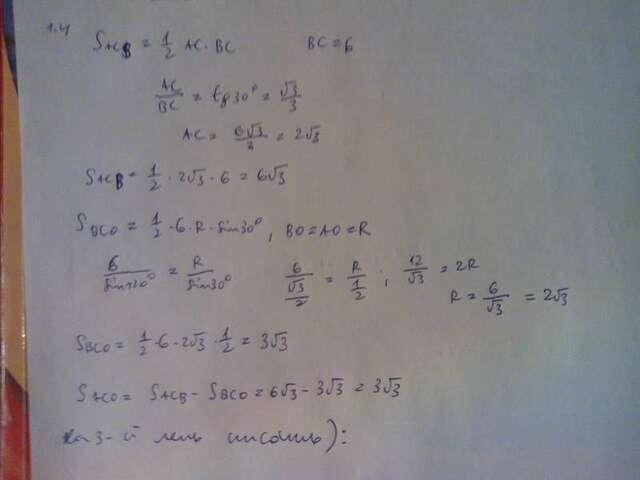 1.4
S_{ACB} = 1/2 AC · BC BC = 6
AC/BC = tg 30° = √3/3
AC = 6√3/3 = 2√3
S_{ACB} = 1/2 · 2√3 · 6 = 6√3
S_{BCO} = 1/2 · 6 · R · sin 30°, BO = AO = R
6/sin 120° = R/sin 30° 6/(√3/2) = R/(1/2) ; 12/√3 = 2R
R = 6/√3 = 2√3
S_{BCO} = 1/2 · 6 · 2√3 · 1/2 = 3√3
S_{ACO} = S_{ACB} - S_{BCO} = 6√3 - 3√3 = 3√3
3-й лень писать ):